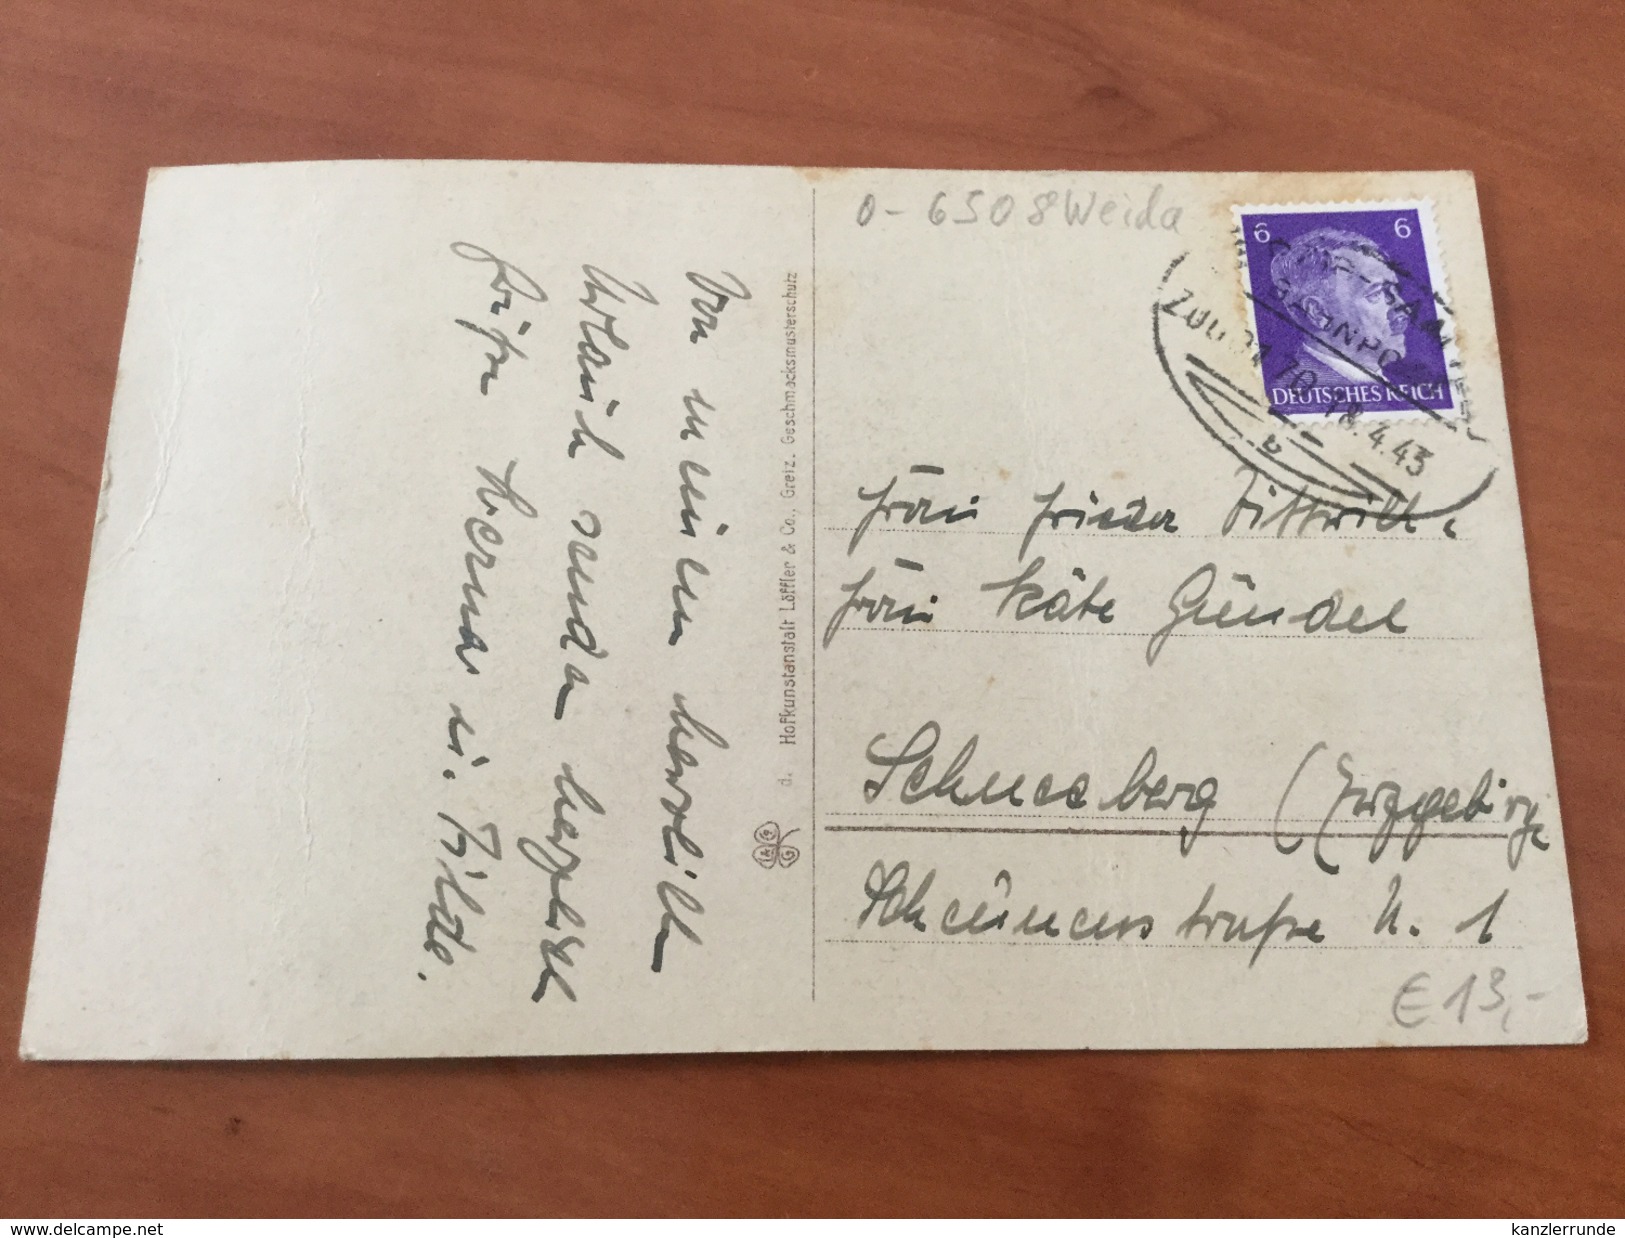 0-6508 Weida
6 6
DEUTSCHES REICH
BAHNPOST
ZUG
18.4.43
Von meinem herrlich
Urlaub senden herzliche
Grüße Werner u. Hilde.
d. Hofkunstanstalt Löffler & Co., Greiz. Geschmacksmusterschutz
L & G
Frau Frieder Dittrich.
Frau Käte Gündel
Schneeberg (Erzgebirge
Scheunenstraße N. 1
€ 13,-
www.delcampe.net
kanzlerrunde